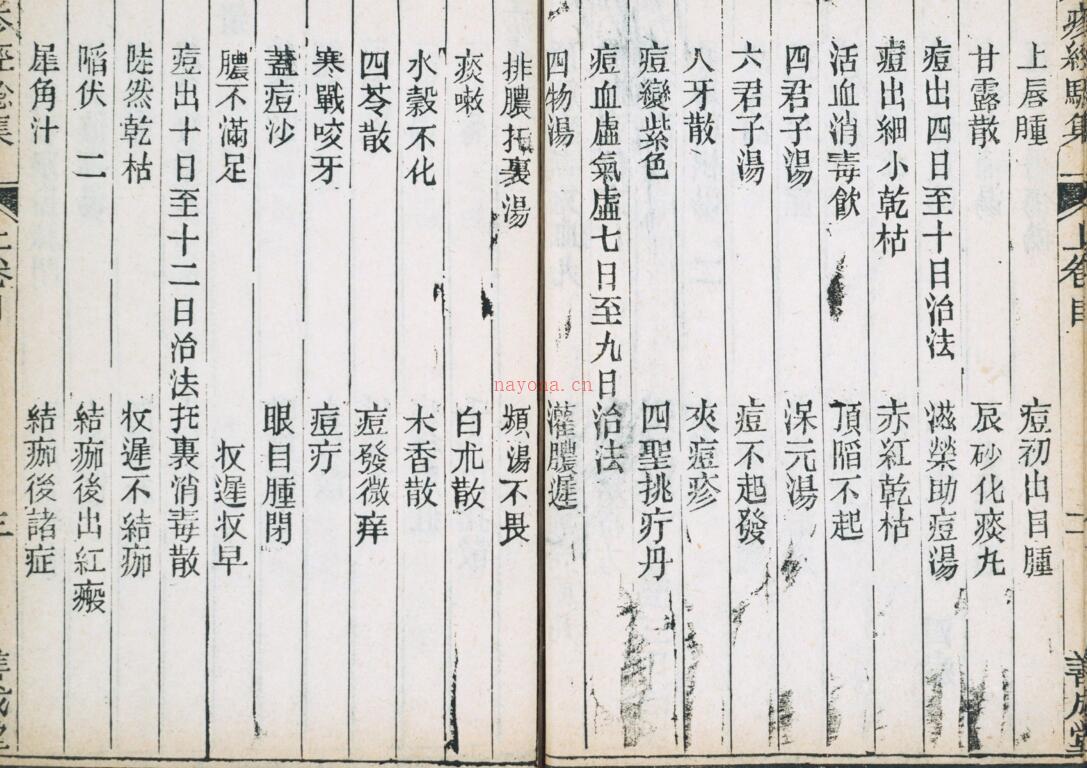 上唇腫 痘初出目腫
甘露散 辰砂化痰丸
痘出四日至十日治法 滋榮助痘湯
痘出細小乾枯 赤紅乾枯
活血消毒飲 頂陷不起
四君子湯 保元湯
六君子湯 痘不起發
八牙散 夾痘疹
痘變紫色 四聖挑疔丹
痘血虛氣虛七日至九日治法
四物湯 灌膿遲
排膿托裏湯 頻湯不畏
痰嗽 白朮散
水穀不化 木香散
四苓散 痘發微痒
寒戰咬牙 痘疔
蓋痘沙 眼目腫閉
膿不滿足 收遲收早
痘出十日至十二日治法 托裏消毒散
陡然乾枯 收遲不結痂
陷伏 二 結痂後出紅瘢
犀角汁 結痂後諸症
上卷目 二 善成堂
三
nayona.cn